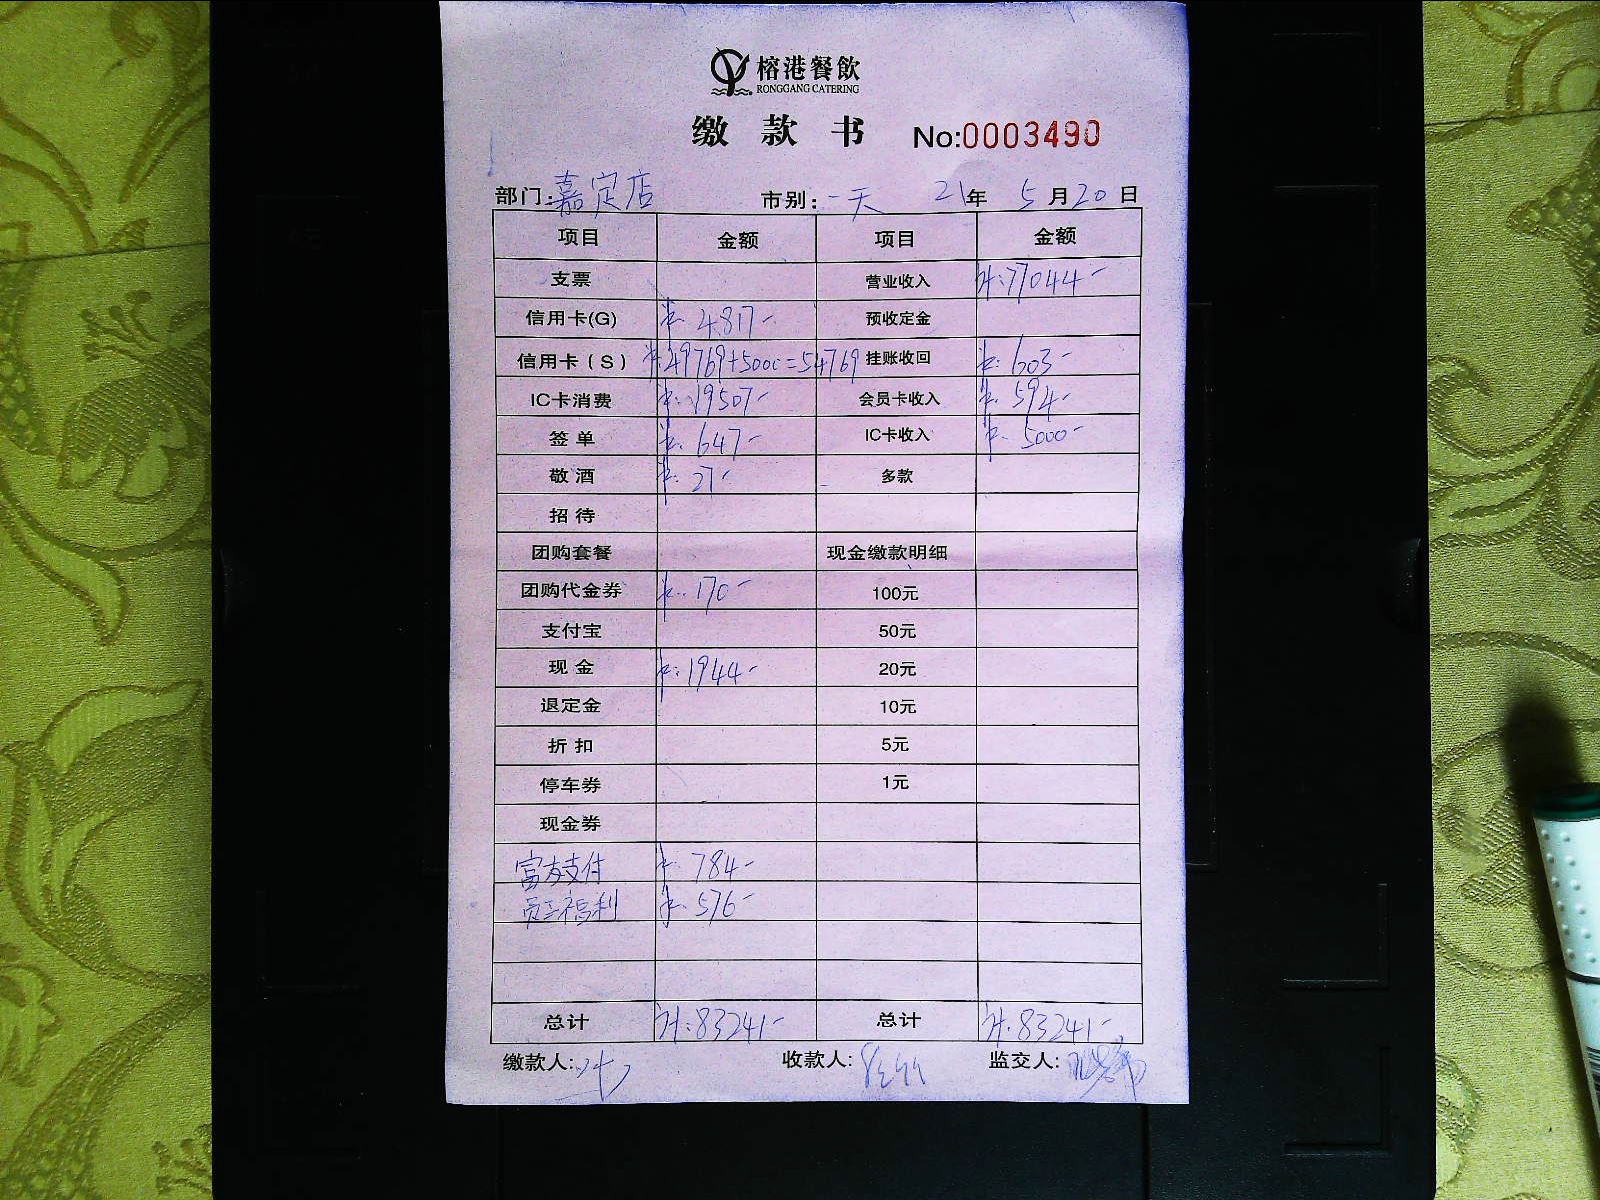 榕港餐飲
RONGGANG CATERING
缴款书 No:0003490
部门:嘉定店 市别:一天 21年 5月20日
项目 金额 项目 金额
支票 营业收入 计:77044-
信用卡(G) ¥:4817- 预收定金
信用卡(S) ¥:49769+5000=54769 挂账收回 ¥:603-
IC卡消费 ¥:19507- 会员卡收入 ¥:594-
签单 ¥:647- IC卡收入 ¥:5000-
敬酒 ¥:27- 多款
招待
团购套餐 现金缴款明细
团购代金券 ¥:170- 100元
支付宝 50元
现金 ¥:1944- 20元
退定金 10元
折扣 5元
停车券 1元
现金券
富友支付 ¥:784-
员工福利 ¥:576-
总计 计:83241- 总计 计:83241-
缴款人: 收款人: 监交人: